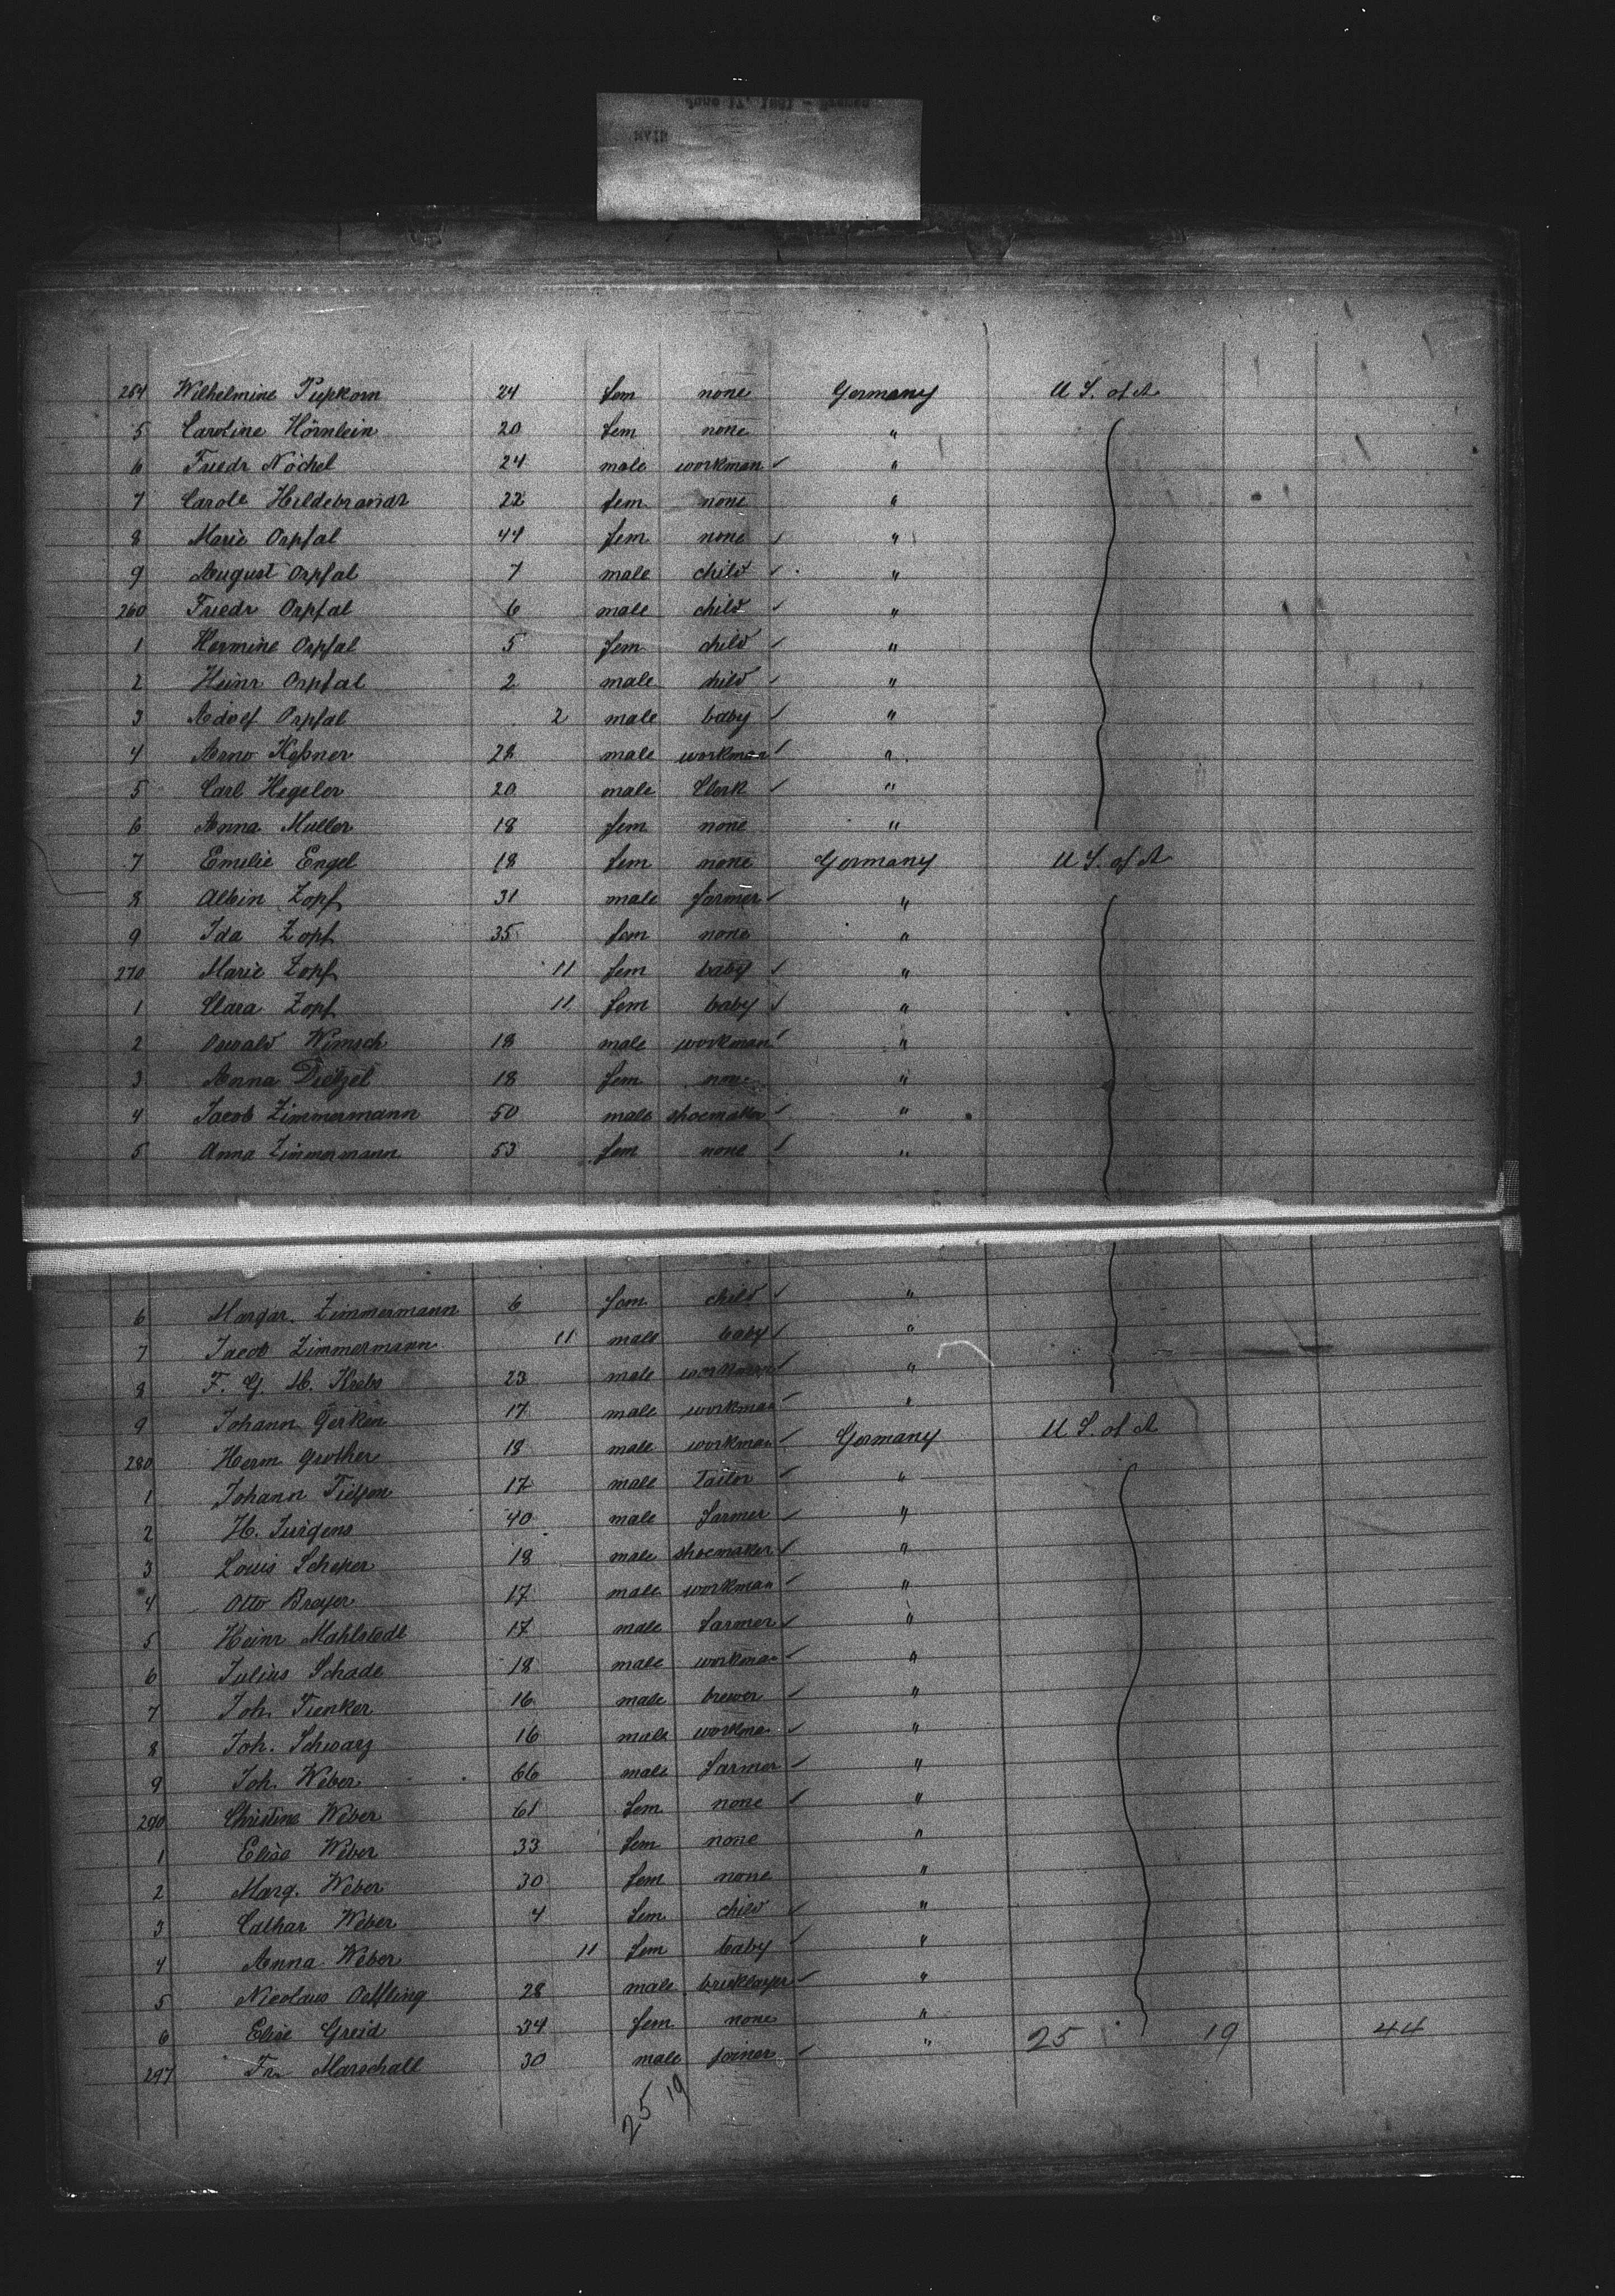 264 Wilhelmine Piepkorn 24 fem none Germany U S. of A
5 Caroline Hörnlein 20 fem none "
6 Friedr Nöchel 24 male workman ✓ "
7 Carole Hildebrandt 22 fem none "
8 Marie Orpfal 44 fem none ✓ "
9 August Orpfal 7 male child ✓ "
260 Friedr Orpfal 6 male child ✓ "
1 Hermine Orpfal 5 fem child ✓ "
2 Heinr Orpfal 2 male hild ✓ "
3 Adolf Orpfal 2 male baby ✓ "
4 Arno Keßner 28 male workman ✓ "
5 Carl Hegeler 20 male Clerk ✓ "
6 Anna Muller 18 fem none "
7 Emilie Engel 18 fem none Germany U S. of A
8 Albin Zopf 31 male farmer ✓ "
9 Ida Zopf 35 fem none "
270 Marie Zopf 11 fem baby ✓ "
1 Clara Zopf 11 fem baby ✓ "
2 Oswald Wunsch 18 male workman ✓ "
3 Anna Dietzel 18 fem none "
4 Jacob Zimmermann 50 male shoemaker ✓ "
5 Anna Zimmermann 53 fem none ✓ "
6 Margar. Zimmermann 6 fem child ✓ "
7 Jacob Zimmermann 11 male baby ✓ "
8 F. G. M. Krebs 23 male workman ✓ "
9 Johann Gerken 17 male workman ✓ "
280 Herm Grother 18 male workman ✓ Germany U S. of A
1 Johann Tietjen 17 male Tailor ✓ "
2 H. Jurgens 40 male farmer ✓ "
3 Louis Scheper 18 male shoemaker ✓ "
4 Otto Breyer 17 male workman ✓ "
5 Heinr Mahlstedt 17 male farmer ✓ "
6 Julius Schade 18 male workman ✓ "
7 Joh. Tienker 16 male brewer ✓ "
8 Joh. Schwarz 16 male workman ✓ "
9 Joh. Weber 66 male farmer ✓ "
290 Christine Weber 61 fem none ✓ "
1 Elise Weber 33 fem none "
2 Marg. Weber 30 fem none "
3 Cathar Weber 4 fem child ✓ "
4 Anna Weber 11 fem baby ✓ "
5 Nicolaus Oetfling 28 male bricklayer ✓ "
6 Elise Greid 34 fem none "
297 Fr. Marschall 30 male joiner ✓ " 25 19 44
25 19